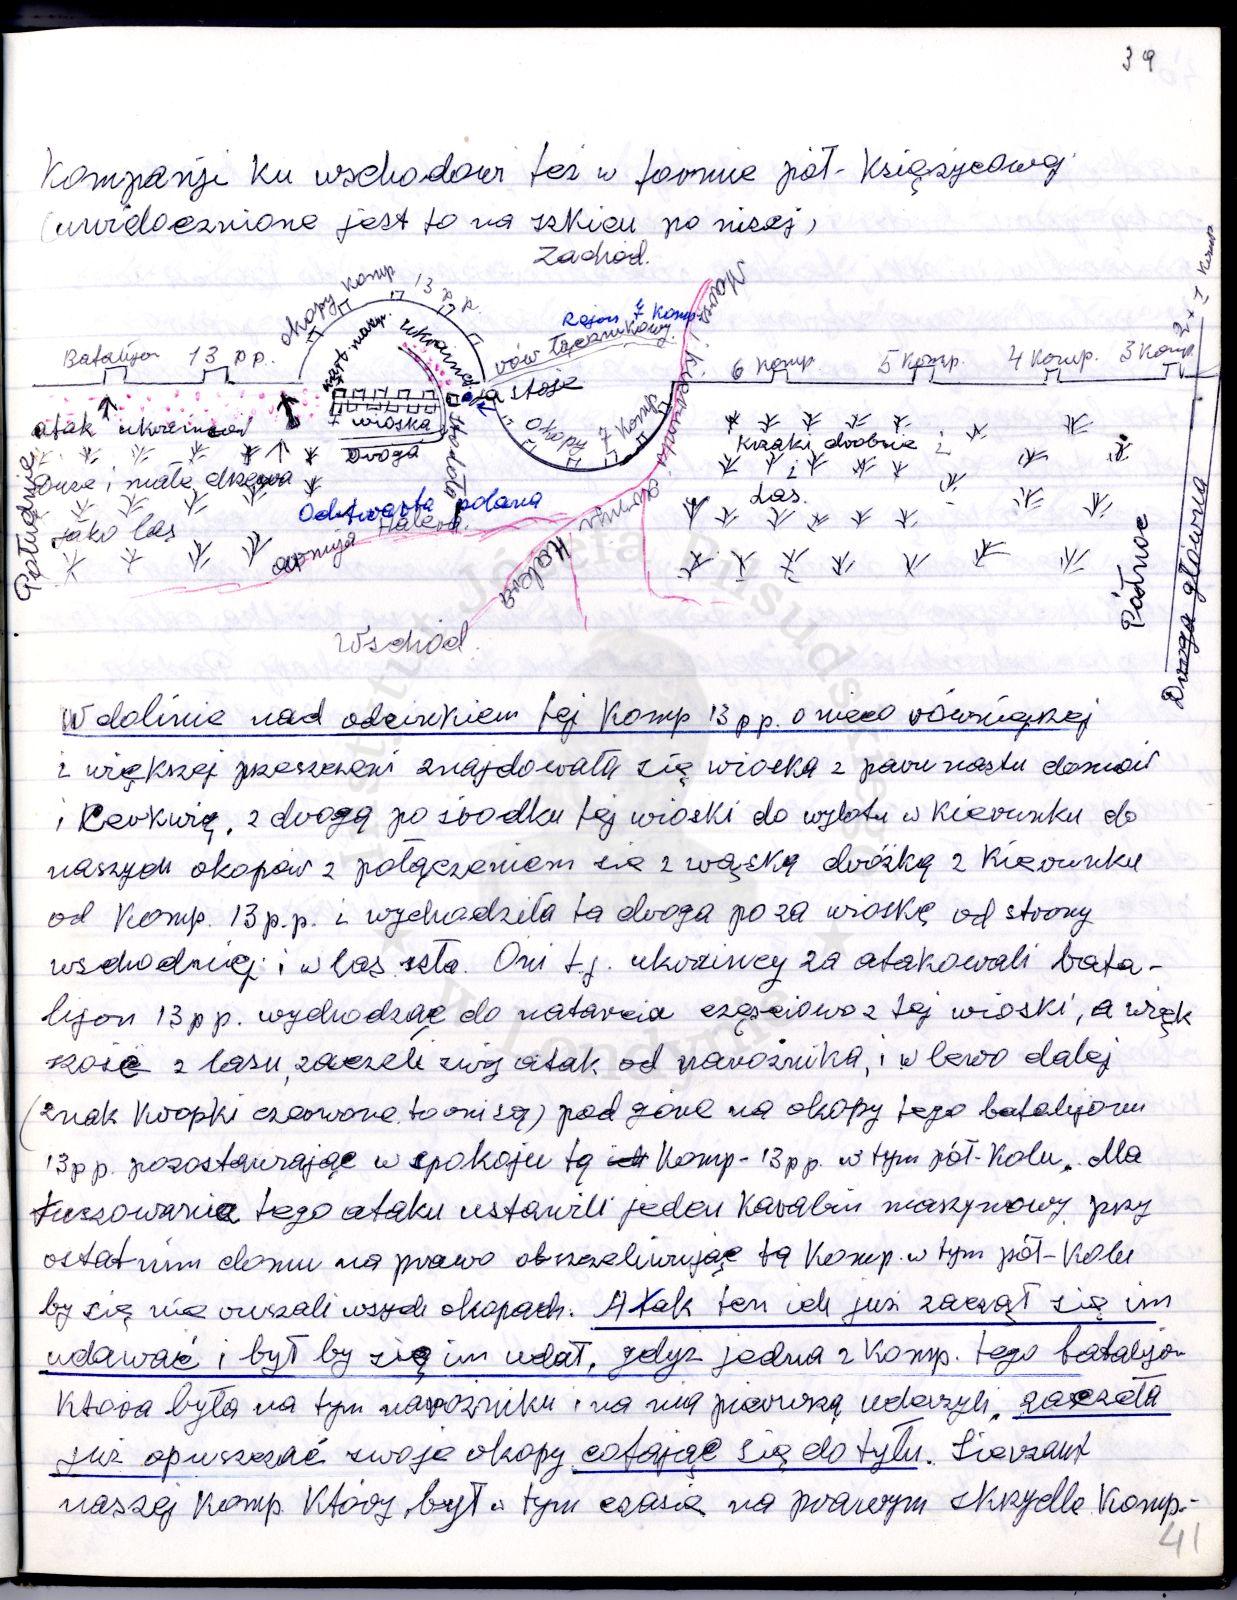 39
Kompanji ku wschodowi też w formie pół-księżycowej
(uwidocznione jest to na szkicu po niżej)
Zachód.
okopy komp 13 p.p.
Rejon 7 Komp.
rów łącznikowy.
ja stoję
Batalijon 13 pp.
ukraincy
6 Komp. 5 Komp. 4 Komp. 3 Komp.
atak ukrainców
wioska
Droga
Stodoła
okopy 7 Komp
Krzaki drobne i
Las.
Duże i małe drzewa
jako las
Odtwarta polana
Halera.
armija
armija
Halera
Południe
Północ
Droga główna
Wschód.
W dolinie nad odcinkiem tej Komp 13 pp. o nieco równiejszej
i większej przeszczeni znajdowała się wioska z parunastu domów
i Cerkwią, z drogą po środku tej wioski do wylotu w kierunku do
naszych okopów z połączeniem sie z wąską dróżką z kierunku
od Komp. 13 p.p. i wychodziła ta droga po za wioskę od strony
wschodniej i w las szła. Oni t.j. ukraincy za atakowali bata-
lijon 13 pp. wychodząc do natarcia częsciowo z tej wioski, a więk
szość z lasu, zaczeli swój atak od narożnika, i w lewo dalej
(znak kropki czerwone to oni są) pod górę na okopy tego batalijonu
13 pp. pozostawiając w spokoju tą Komp-13 pp. w tym pół-kolu. Dla
tuszowania tego ataku ustawili jeden karabin maszynowy przy
ostatnim domu na prawo obszczeliwując tą Komp. w tym pół-kolu
by się nie ruszali wszych okopach. Atak ten ich już zaczął się im
udawać i był by się im udał, gdyż jedna z Komp. tego batalijon
która była na tym narożniku i na nią pierwszą uderzyli, zaczeła
już opuszczać swoje okopy cofając się do tyłu. Sierżant
naszej Komp który był w tym czasie na prawym skrzydle Komp.-
41
Instytut Józefa Piłsudskiego
w Londynie